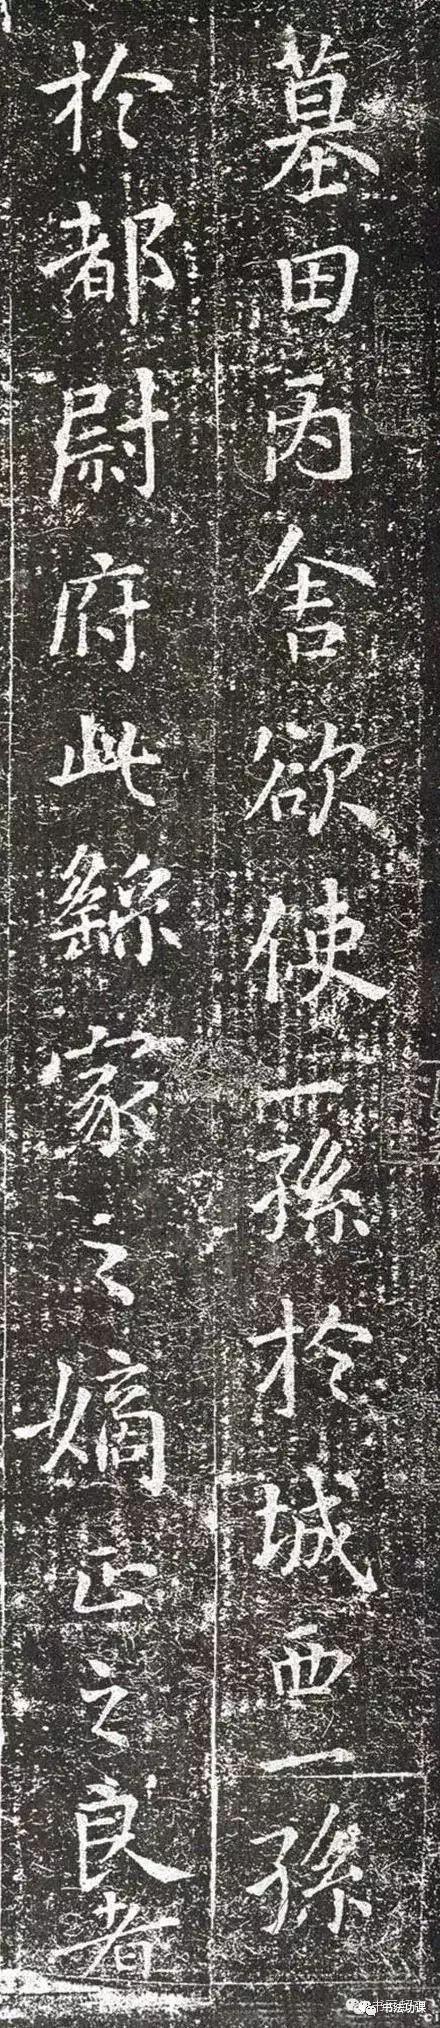 墓田丙舍欲使一孫於城西一孫
於都尉府此繇家之嫡正之良者
书法功课